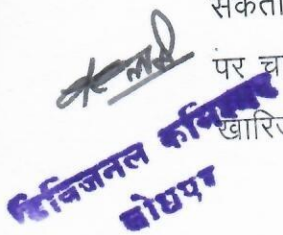 सकता
पर च
खारिज
डिविजनल कमिश्नर
जोधपुर